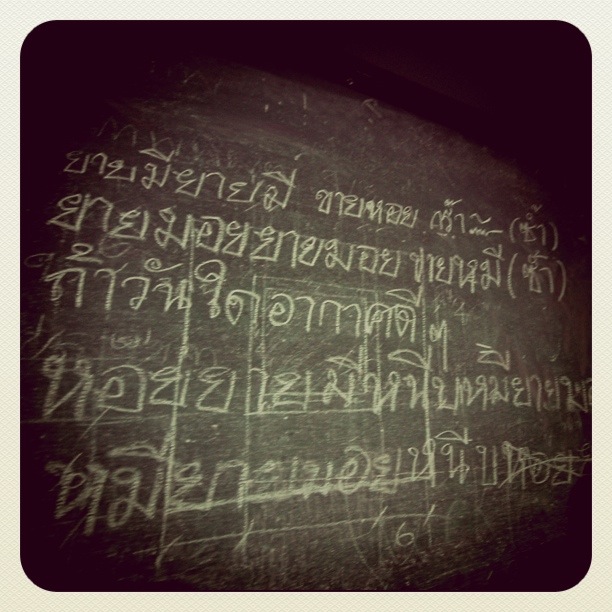 ยายมียายมี ขายหอย (ซ้ำ)
ยายมอยยายมอย ขายหมี (ซ้ำ)
ถ้าวันใดอากาศดีๆ
หอยยายมีหนีบหมียายมอ
หมียายมอยหนีบหอย
6